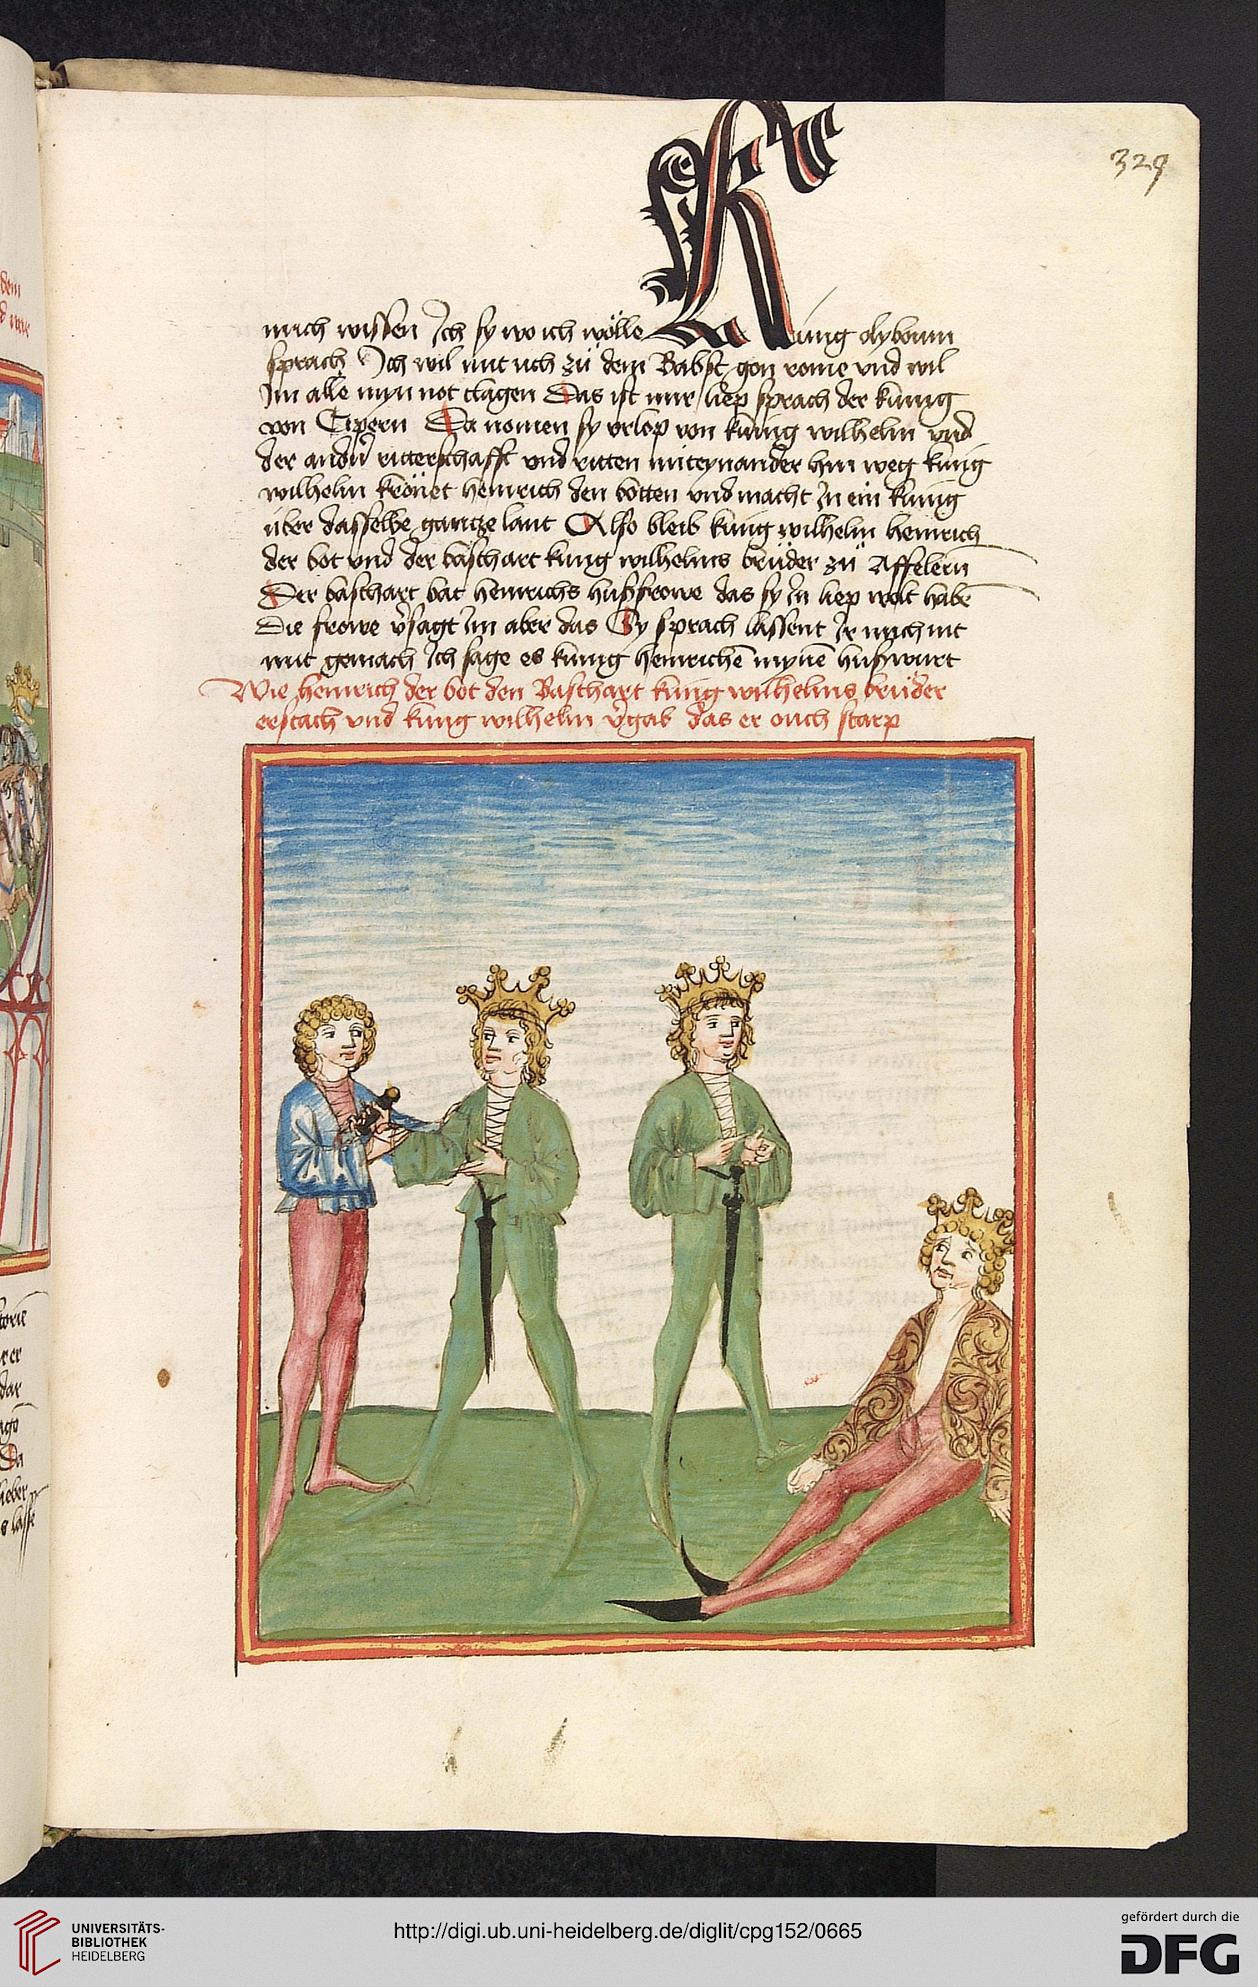 329
mich wissen Ich sy wo ich wölle Kung olyboum
sprach Ich wil mit uch zü dem Babst gon rome vnd wil
Im alle myn not clagen Das ist mir liep sprach der kunig
von Cipern Da nomen sy vrlop von kunig wilhelm vnd
der andn̄ ritterschafft vnd ritten miteynander hin weg kunig
wilhelm krönet heinrich den botten vnd macht In ein kunig
über dasselbe gantze lant Also bleib kunig wilhelm heinrich
der bot vnd der baschart kunig wilhelms brüder zü Affelern
Der baschart bat heinrichs hußfrowe das sy In liep wolt habē
Die frowe v̄sagt Im aber das Sy sprach lassent Ir mich nit
mit gemach Ich sage es kunig heinrichē mynē hußwurt
Wie heinrich der bot den Baschart kunig wilhelms brüder
erstach vnd kunig wilhelm v̄gab das er ouch starp
UNIVERSITÄTS-
BIBLIOTHEK
HEIDELBERG
http://digi.ub.uni-heidelberg.de/diglit/cpg152/0665
gefördert durch die
DFG